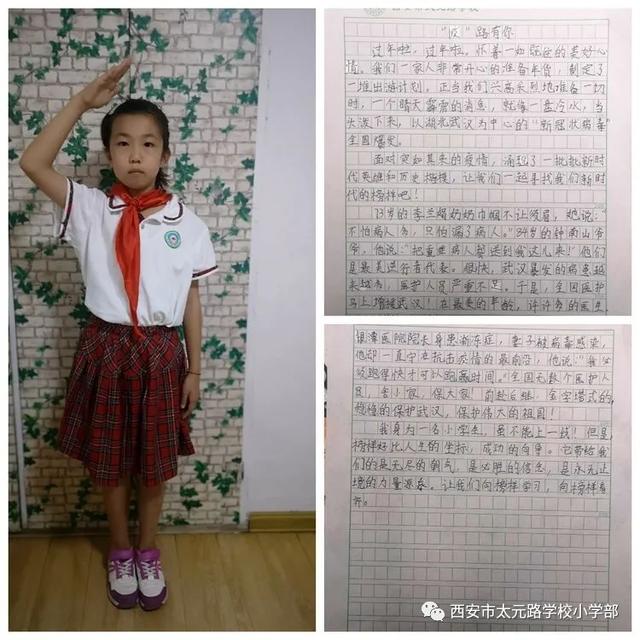 西安市太元路学校
"疫"路有你
过年啦，过年啦。怀着一如既往的美好心
情，我们一家人非常开心的准备年货，制定了
一堆出游计划，正当我们兴高采烈地准备一切
时，一个晴天霹雳的消息，就像一盆冷水，当
头泼下来，以湖北武汉为中心的"新冠状病毒"
全国爆发。
面对突如其来的疫情，涌起了一批批新时
代英雄和历史楷模，让我们一起寻找我们新时
代的榜样吧！
73岁的李兰娟奶奶巾帼不让须眉，她说：
不怕病人多，只怕漏了病人。"84岁的钟南山爷
爷，他说："把重症病人都送到我这儿来！"他们
是最美逆行者代表。很快，武汉暴发的病患越
来越多，医护人员严重不足。于是，全国医护
马上增援武汉！在最美的年龄，许许多的医生
银潭医院院长身患渐冻症，妻子被病毒感染，
他却一直守在抗击疫情的最前沿，他说："我必
须跑得快才可以跑赢时间。"全国无数个医护人
员，舍小家，保大家！前赴后继，金字塔式的
稳稳的保护武汉，保护伟大的祖国！
我身为一名小学生，虽不能上一线！但是，
榜样好比人生的坐标，成功的向导。它带给我
们的是无尽的朝气，是必胜的信念，是永无止
境的力量源泉。让我们向榜样学习，向榜样看
齐。
西安市太元路学校小学部